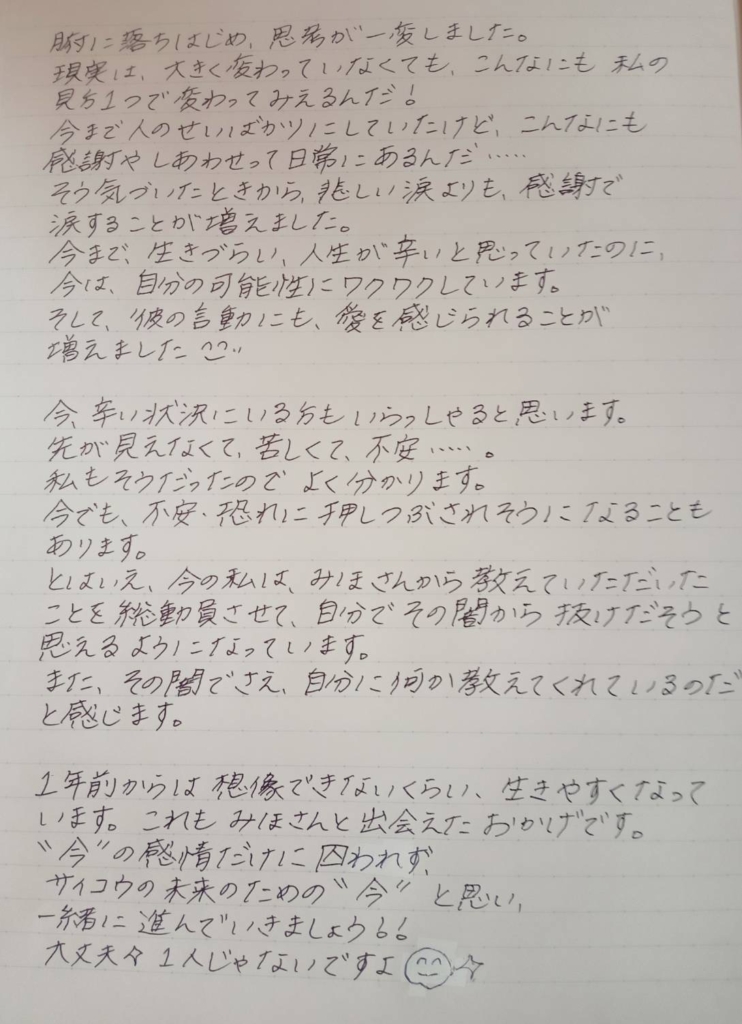 腑に落ちはじめ、思考が一変しました。
現実は、大きく変わっていなくても、こんなにも 私の
見方1つで変わってみえるんだ!
今まで人のせいばかりにしていたけど、こんなにも
感謝や しあわせって日常にあるんだ……
そう気づいたときから、悲しい涙よりも、感謝で
涙することが増えました。
今まで、生きづらい、人生が辛いと思っていたのに、
今は、自分の可能性にワクワクしています。
そして、彼の言動にも、愛を感じられることが
増えました
今、辛い状況にいる方も いらっしゃると思います。
先が見えなくて、苦しくて、不安……。
私もそうだったので よく分かります。
今でも、不安・恐れに 押しつぶされそうに なることも
あります。
とはいえ、今の私は、みほさんから 教えていただいた
ことを 総動員させて、自分で その闇から 抜けだそう と
思えるようになっています。
また、その闇でさえ、自分に何か教えてくれているのだ
と感じます。
1年前からは 想像できないくらい、生きやすくなって
います。これも みほさんと 出会えた おかげです。
"今"の感情だけに 囚われず、
サイコウの未来のための"今" と思い、
一緒に 進んでいきましょう!!
大丈夫々 1人じゃないですよ